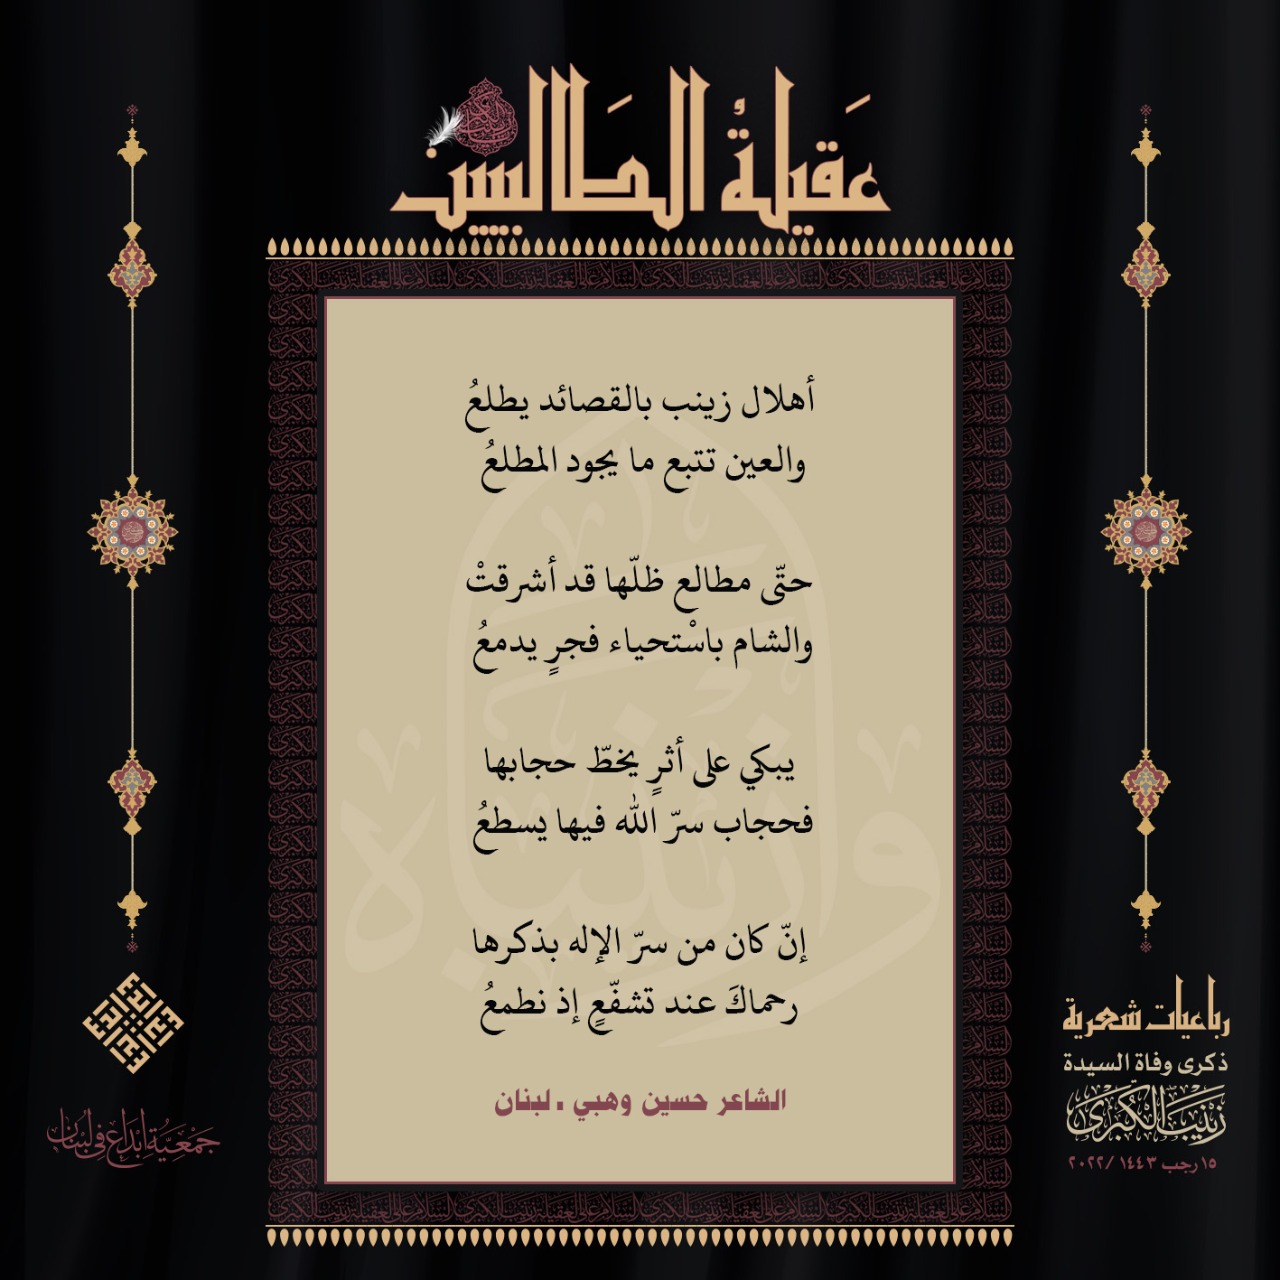 عَقيلةُ الطَالبيين
أهلال زينب بالقصائد يطلعُ
والعين تتبع ما يجود المطلعُ
حتّى مطالع ظلّها قد أشرقتْ
والشام باسْتحياء فجرٍ يدمعُ
يبكي على أثرٍ يخطّ حجابها
فحجاب سرّ الله فيها يسطعُ
إنّ كان من سرّ الإله بذكرها
رحماكَ عند تشفّعٍ إذ نطمعُ
الشاعر حسين وهبي . لبنان
رباعيات شعرية
ذكرى وفاة السيدة
زَيْنَب الْكُبرَى
١٥ رجب ١٤٤٣ /٢٠٢٢
جَمْعِيَّة إبْدَاع فِي لُبْنَان